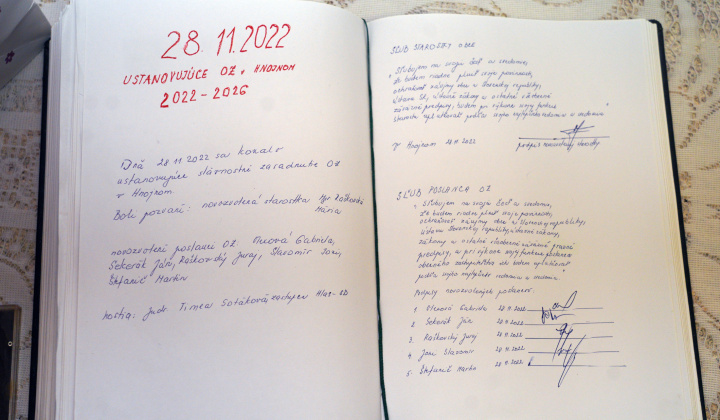 28. 11. 2022
USTANOVUJÚCE OZ v HNOJNOM
2022 - 2026
Dňa 28 11 2022 sa konalo
ustanovujúce slávnostné zasadnutie OZ
v Hnojnom
Boli pozvaní: novozvolená starostka Mgr Raškovská
Mária
novozvolení poslanci OZ Vlčková Gabriela,
Sekerák Ján, Raškovský Juraj, Slavomír Jano,
Štefanič Martin
hostia: Judr. Timea Sotáková zástupca
SĽUB STAROSTKY OBCE
"Sľubujem na svoju česť a svedomie,
že budem riadne plniť svoje povinnosti,
ochraňovať záujmy obce a Slovenskej republiky,
Ústavu SR, ústavné zákony a ostatné všeobecné
záväzné predpisy, budem pri výkone svojej funkcie
starostu uplatňovať podľa svojho najlepšieho vedomia a svedomia
v Hnojnom 28 11 2022 podpis novozvolenej starostky
SĽUB POSLANCA OZ
"Sľubujem na svoju česť a svedomie,
že budem riadne plniť svoje povinnosti,
ochraňovať záujmy obce a Slovenskej republiky,
Ústavu Slovenskej republiky, ústavné zákony,
zákony a ostatné všeobecné záväzné právne
predpisy, a pri výkone svojej funkcie poslanca
obecného zastupiteľstva ich budem uplatňovať
podľa svojho najlepšieho vedomia a svedomia.
Podpisy novozvolených poslancov:
1. Gabriela 28 11 2022
2. Sekerák Ján 28 11 2022
3. Raškovský Juraj 28 11 2022
4. Jano Slavomír 28 11 2022
5. Štefanič Martin 28 11 2022